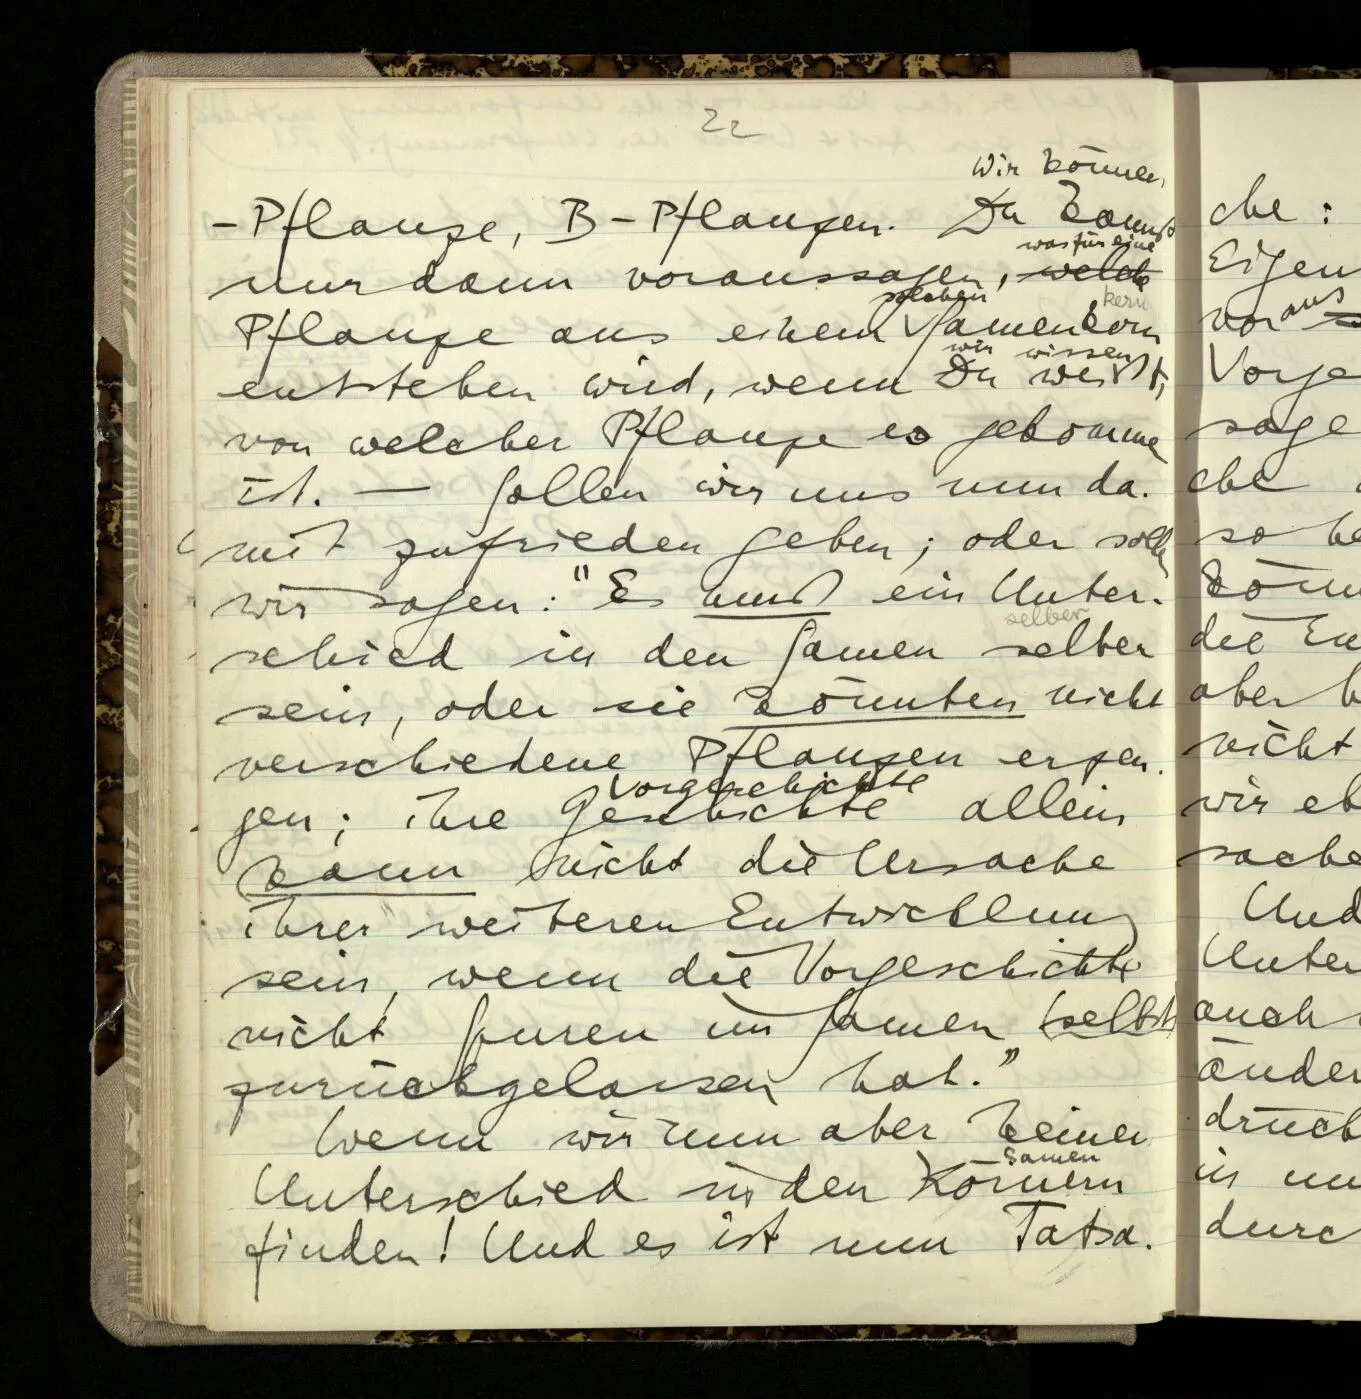 22
Wir können
-Pflanze, B-Pflanzen. Du kannst
was für eine
nur dann voraussagen, welche
solchen kern
Pflanze aus einem Samenkorn
wir wissen
entstehen wird, wenn Du weißt,
von welcher Pflanze es gekommen
ist. — Sollen wir uns nun da-
mit zufrieden geben; oder sollen
wir sagen: "Es muß ein Unter-
selber
schied in den Samen selber
sein, oder sie könnten nicht
verschiedene Pflanzen erzeu-
Vorgeschichte
gen; ihre Geschichte allein
kann nicht die Ursache
ihrer weiteren Entwicklung
sein, wenn die Vorgeschichte
nicht Spuren im Samen selbst
zurückgelassen hat."
Wenn wir nun aber keinen
Samen
Unterschied in den Körnern
finden! Und es ist nun Tatsa-
che:
Eigen
voraus
Vorge
sage
che
so
könn
die En
aber
nicht
wir
sache
Und
Unter
auch
änder
drück
in
durc